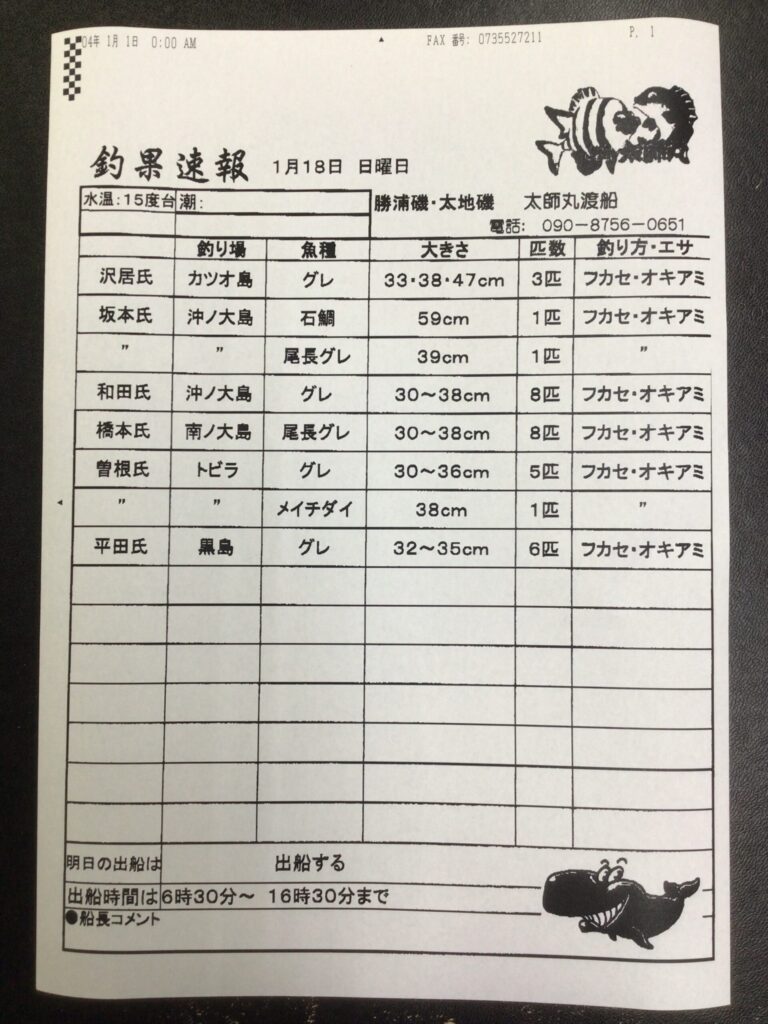 04年 1月 1日 0:00 AM FAX 番号: 0735527211 P. 1
太師丸
釣果速報 1月18日 日曜日
水温:15度台 潮: 勝浦磯・太地磯 太師丸渡船
電話: 090-8756-0651
釣り場 魚種 大きさ 匹数 釣り方・エサ
沢居氏 カツオ島 グレ 33・38・47cm 3匹 フカセ・オキアミ
坂本氏 沖ノ大島 石鯛 59cm 1匹 フカセ・オキアミ
〃 〃 尾長グレ 39cm 1匹 〃
和田氏 沖ノ大島 グレ 30～38cm 8匹 フカセ・オキアミ
橋本氏 南ノ大島 尾長グレ 30～38cm 8匹 フカセ・オキアミ
曽根氏 トビラ グレ 30～36cm 5匹 フカセ・オキアミ
〃 〃 メイチダイ 38cm 1匹 〃
平田氏 黒島 グレ 32～35cm 6匹 フカセ・オキアミ
明日の出船は 出船する
出船時間は 6時30分～ 16時30分まで
●船長コメント